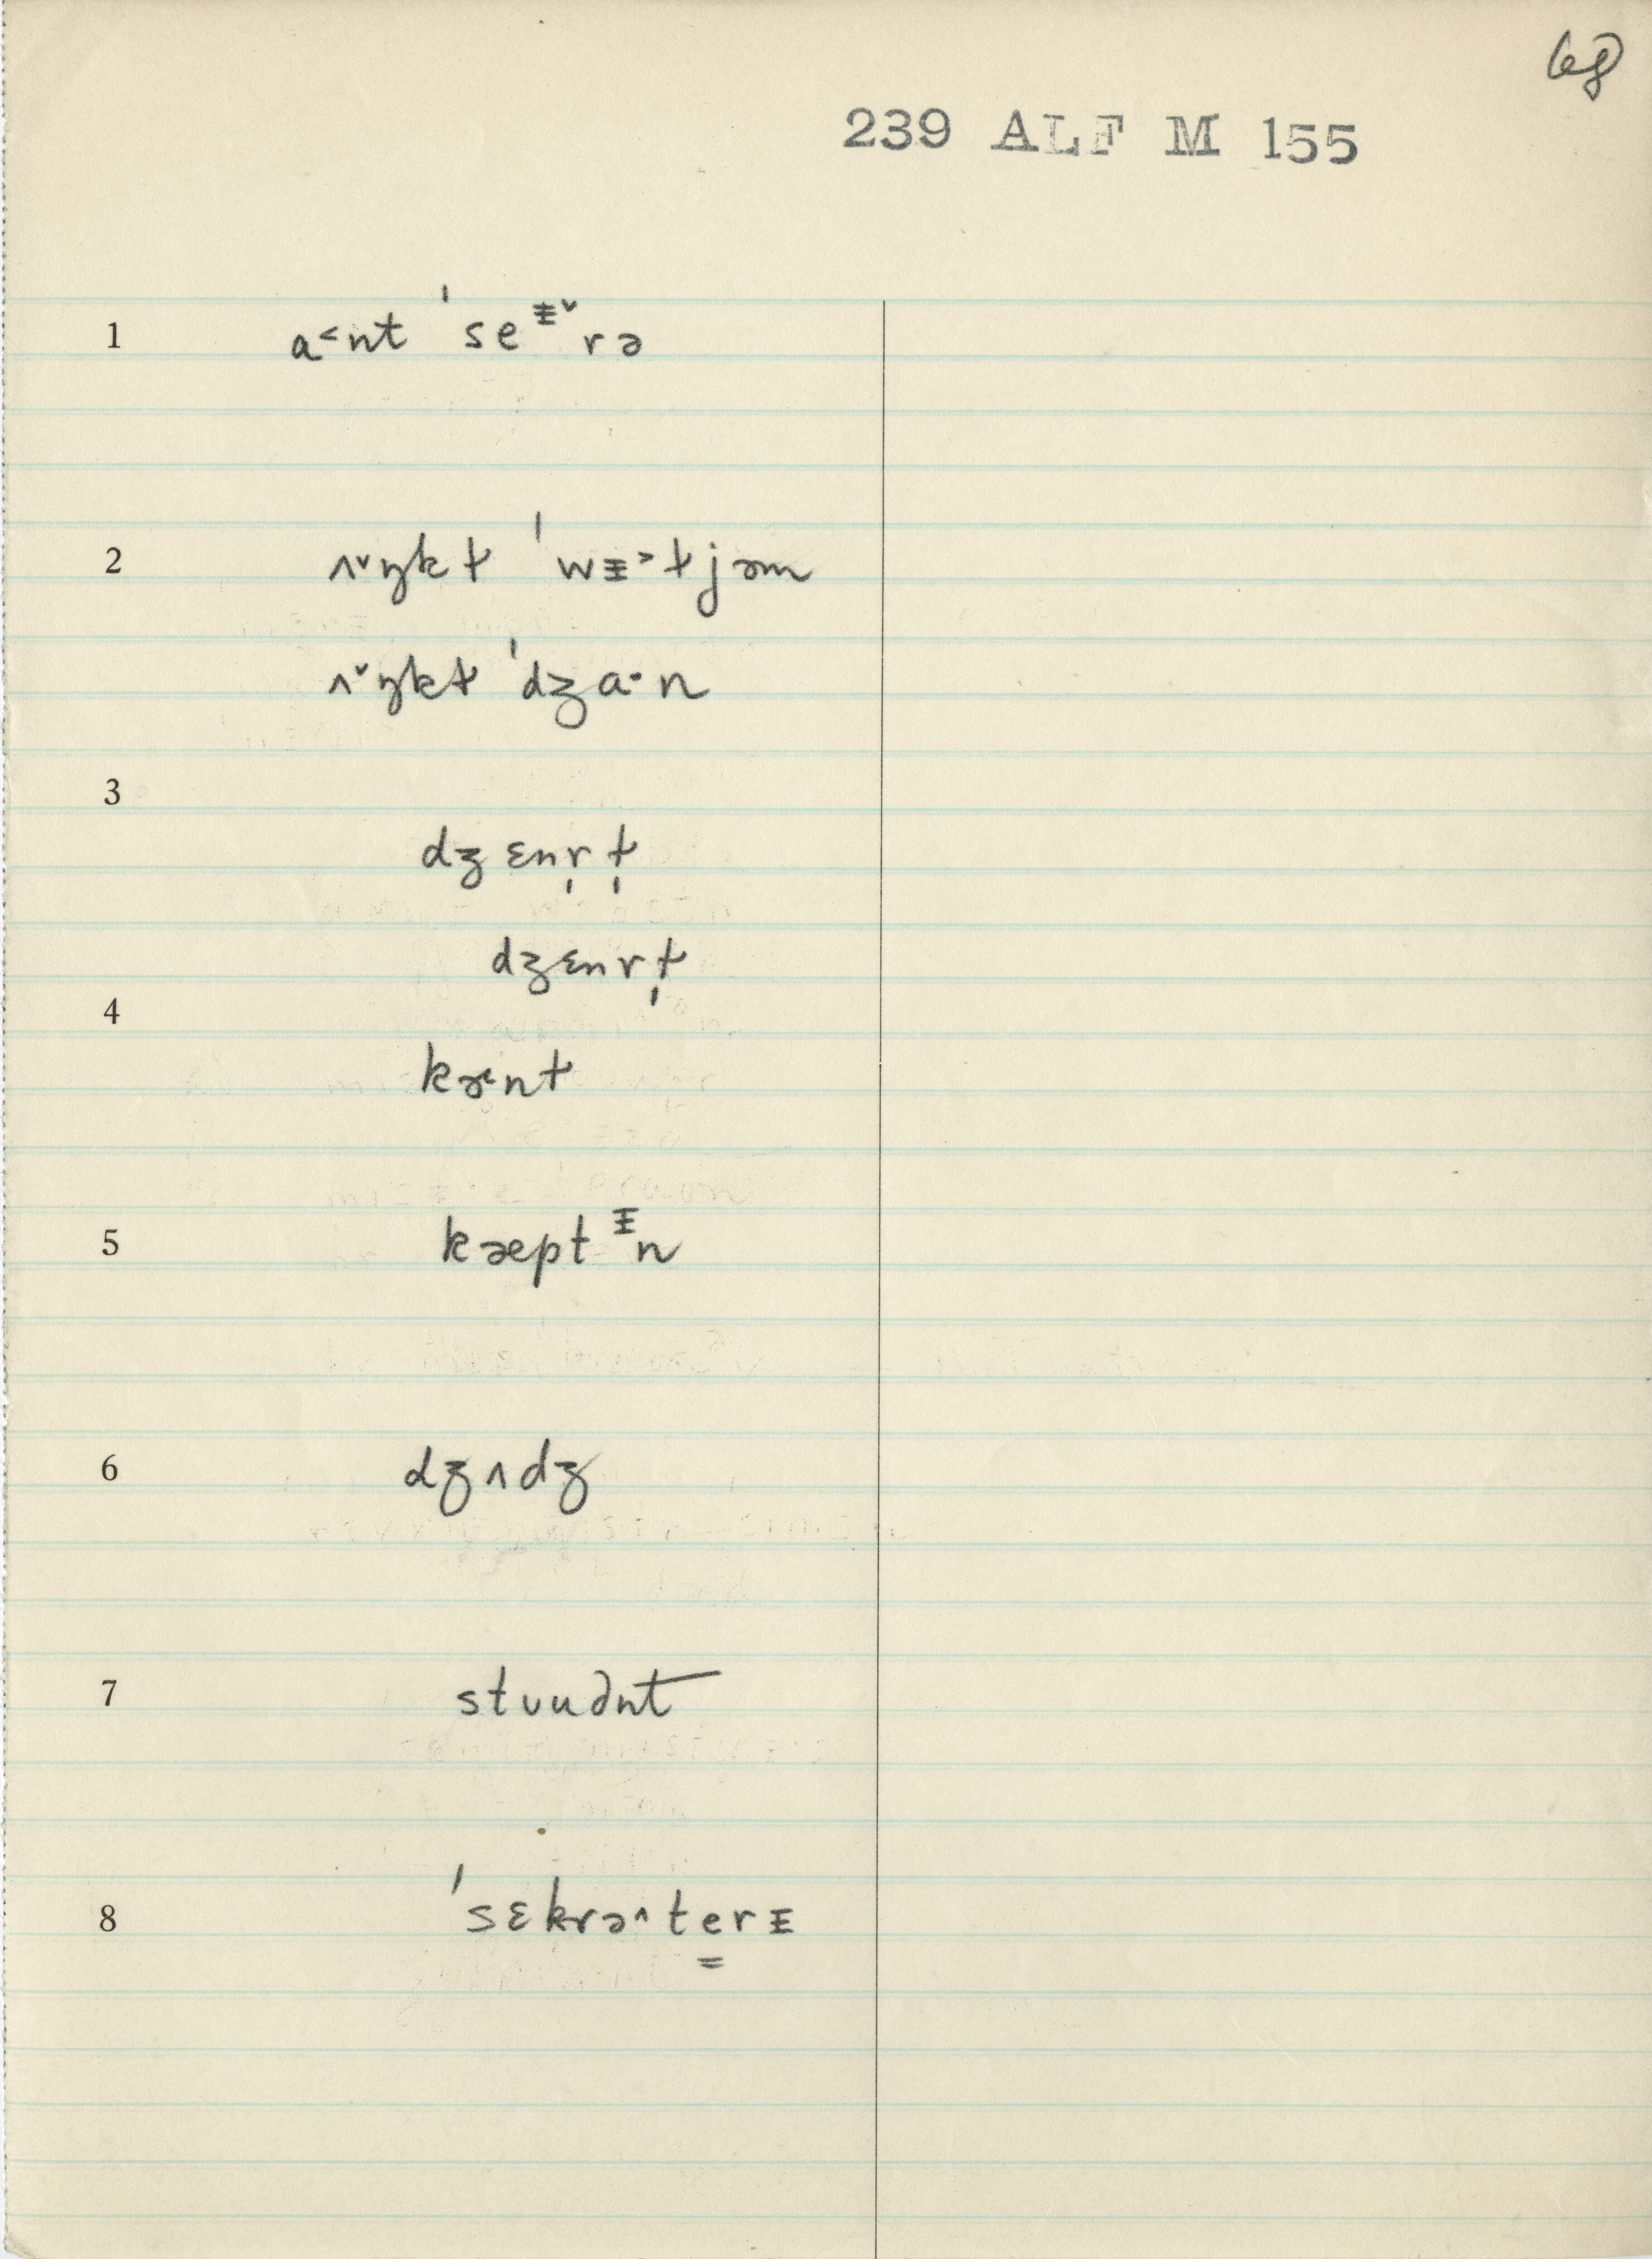 68
239 ALF M 155
1 a˂nt ˈseᵻ˅rə
2 ʌ˅ŋkt ˈwᵻ˃tjəm
ʌ˅ŋkt ˈdʒa·n
3
dʒɛnr̩t̩
dʒɛnrt̩
4
kæ˂nt
5 kæptᵻn
6 dʒʌdʒ
7 stuudnt
8 ˈsɛkrə˄te̳rᵻ